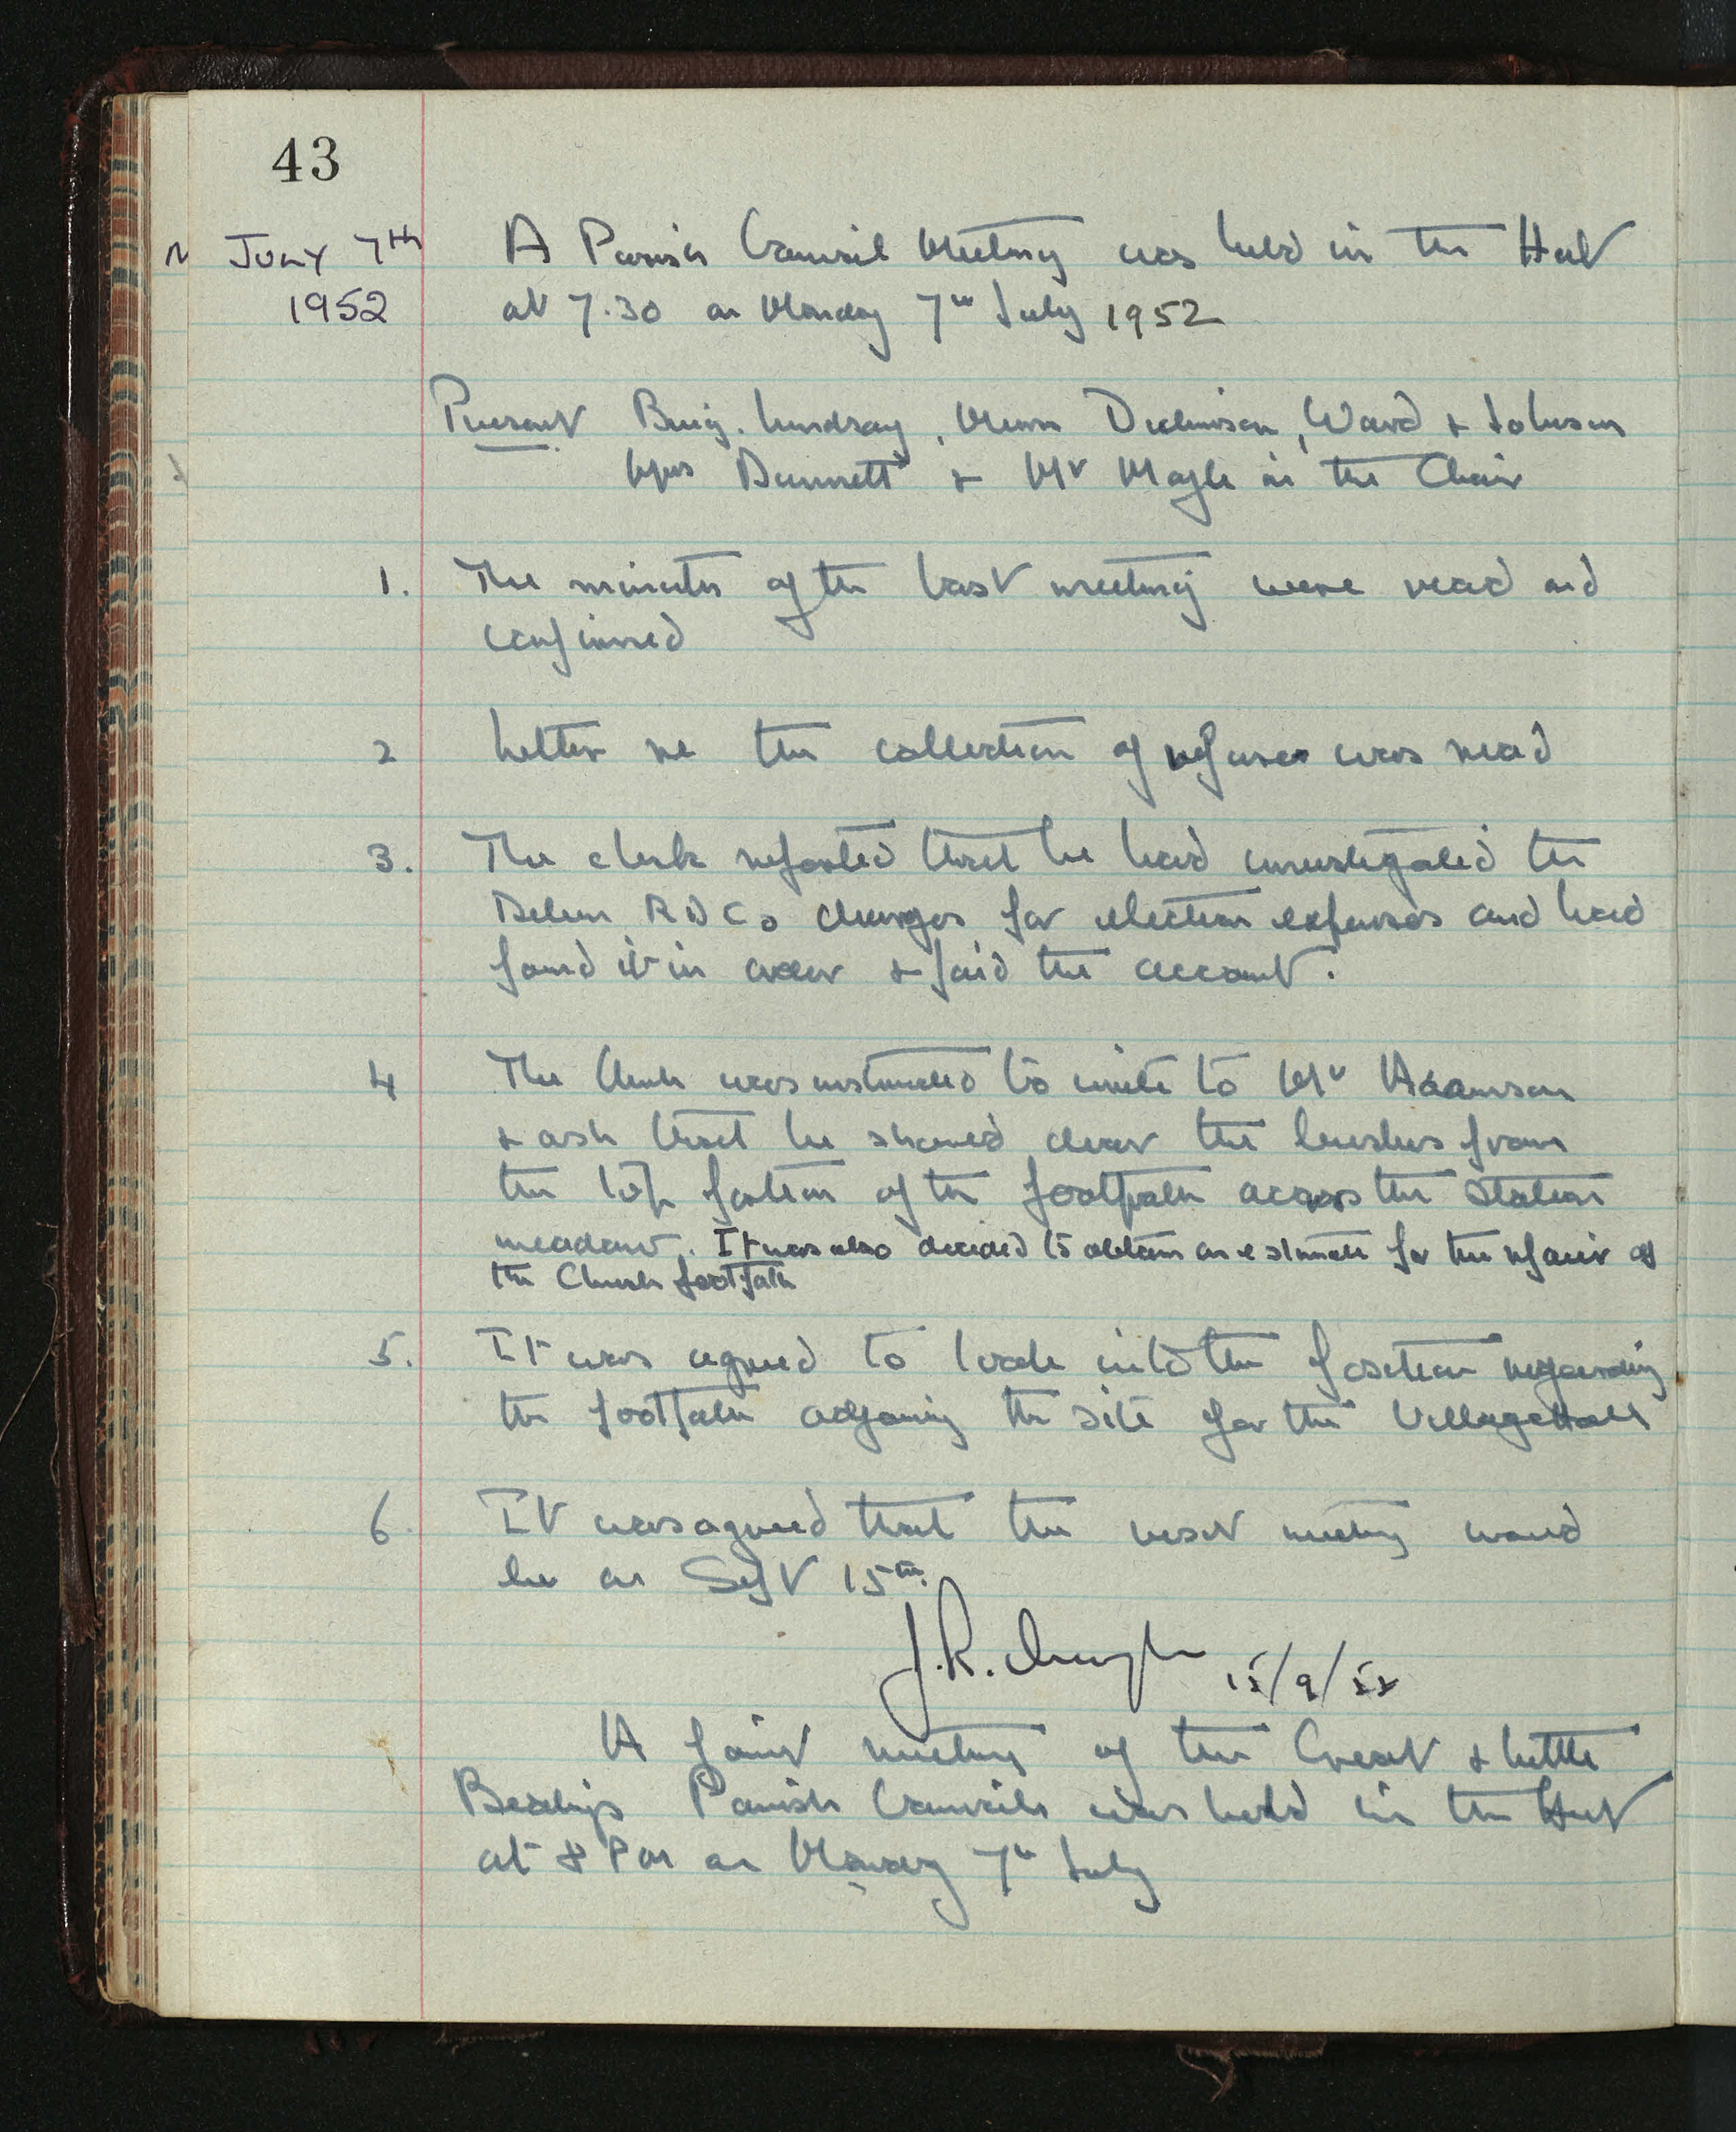 43
July 7th
1952
A Parish Council Meeting was held in the Hut
at 7.30 on Monday 7th July 1952
Present Brig. Lindsay, Messrs Dickinson, Ward & Johnson
Mrs Dunnett & Mr Mayle in the Chair
1. The minutes of the last meeting were read and
confirmed
2 Letter re the collection of refuse was read
3. The clerk reported that he had investigated the
RDCs charges for election expenses and had
found it in order & paid the account.
4 The Clerk was instructed to write to Mr Adamson
& ask that he should clear the bushes from
the top portion of the footpath across the station
meadow. It was also decided to obtain an estimate for the repair of
the Church footpath
5. It was agreed to look into the position regarding
the footpath adjoining the site for the Village Hall
6. It was agreed that the next meeting would
be on Sept 15th.
J.R. 15/9/52
A joint meeting of the Great & Little
Bealings Parish Councils was held in the Hut
at 8 PM on Monday 7th July